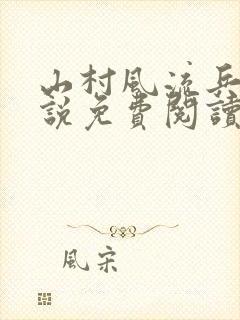 山村風流兵
說免費閱讀
風宋